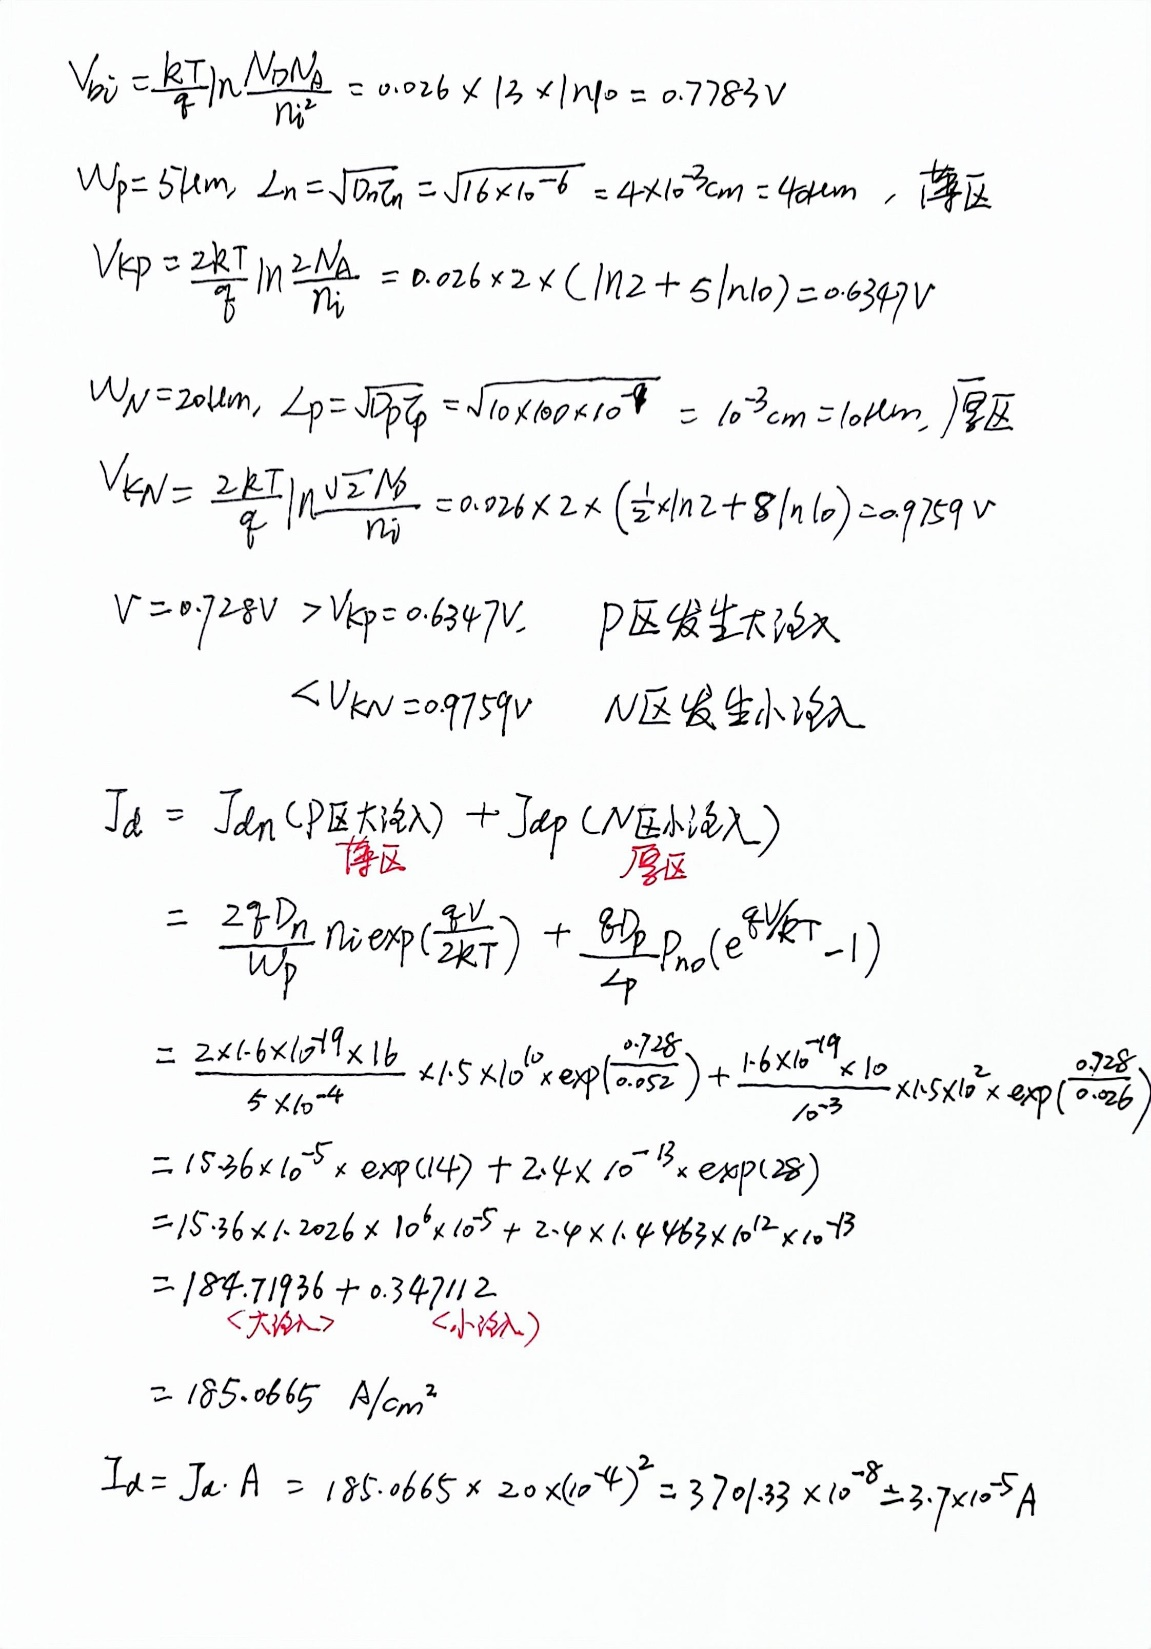 Vbi = kT/q ln NDNA/ni² = 0.026 × 13 × ln10 = 0.7783V
Wp = 5μm, Ln = √Dnτn = √16×10⁻⁶ = 4×10⁻³cm = 40μm, 薄区
VKP = 2kT/q ln 2NA/ni = 0.026×2×(ln2 + 5ln10) = 0.6347V
WN = 20μm, Lp = √Dpτp = √10×100×10⁻⁹ = 10⁻³cm = 10μm, 厚区
VKN = 2kT/q ln √2 ND/ni = 0.026×2×(½×ln2 + 8ln10) = 0.9759V
V = 0.728V > VKP = 0.6347V. P区发生大注入
< VKN = 0.9759V N区发生小注入
Jd = Jdn (P区大注入) + Jdp (N区小注入)
薄区 厚区
= 2qDn/Wp ni exp(qV/2kT) + qDp/Lp Pno (e^qV/kT - 1)
= 2×1.6×10⁻¹⁹×16/5×10⁻⁴ ×1.5×10¹⁰×exp(0.728/0.052) + 1.6×10⁻¹⁹×10/10⁻³ ×1.5×10²×exp(0.728/0.026)
= 15.36×10⁻⁵×exp(14) + 2.4×10⁻¹³×exp(28)
= 15.36×1.2026×10⁶×10⁻⁵ + 2.4×1.4463×10¹²×10⁻¹³
= 184.71936 + 0.347112
<大注入> <小注入>
= 185.0665 A/cm²
Id = Jd·A = 185.0665 × 20×(10⁻⁴)² = 3701.33×10⁻⁸ ≐ 3.7×10⁻⁵A